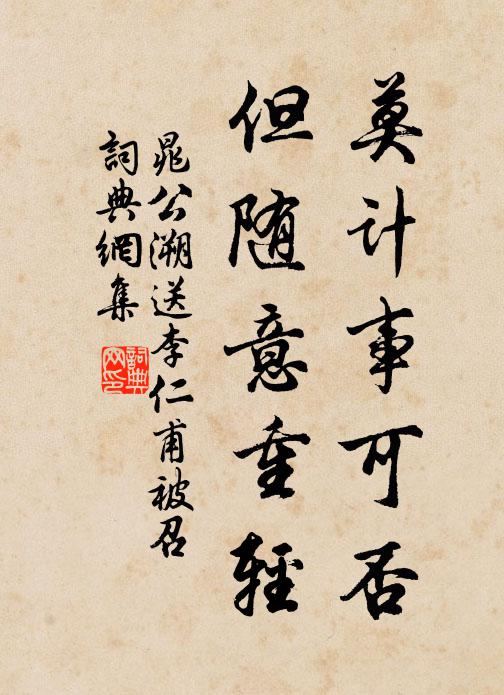 莫计事可否
但随意重輕
晁公溯送李仁甫被召
詞典網集
詞典网印